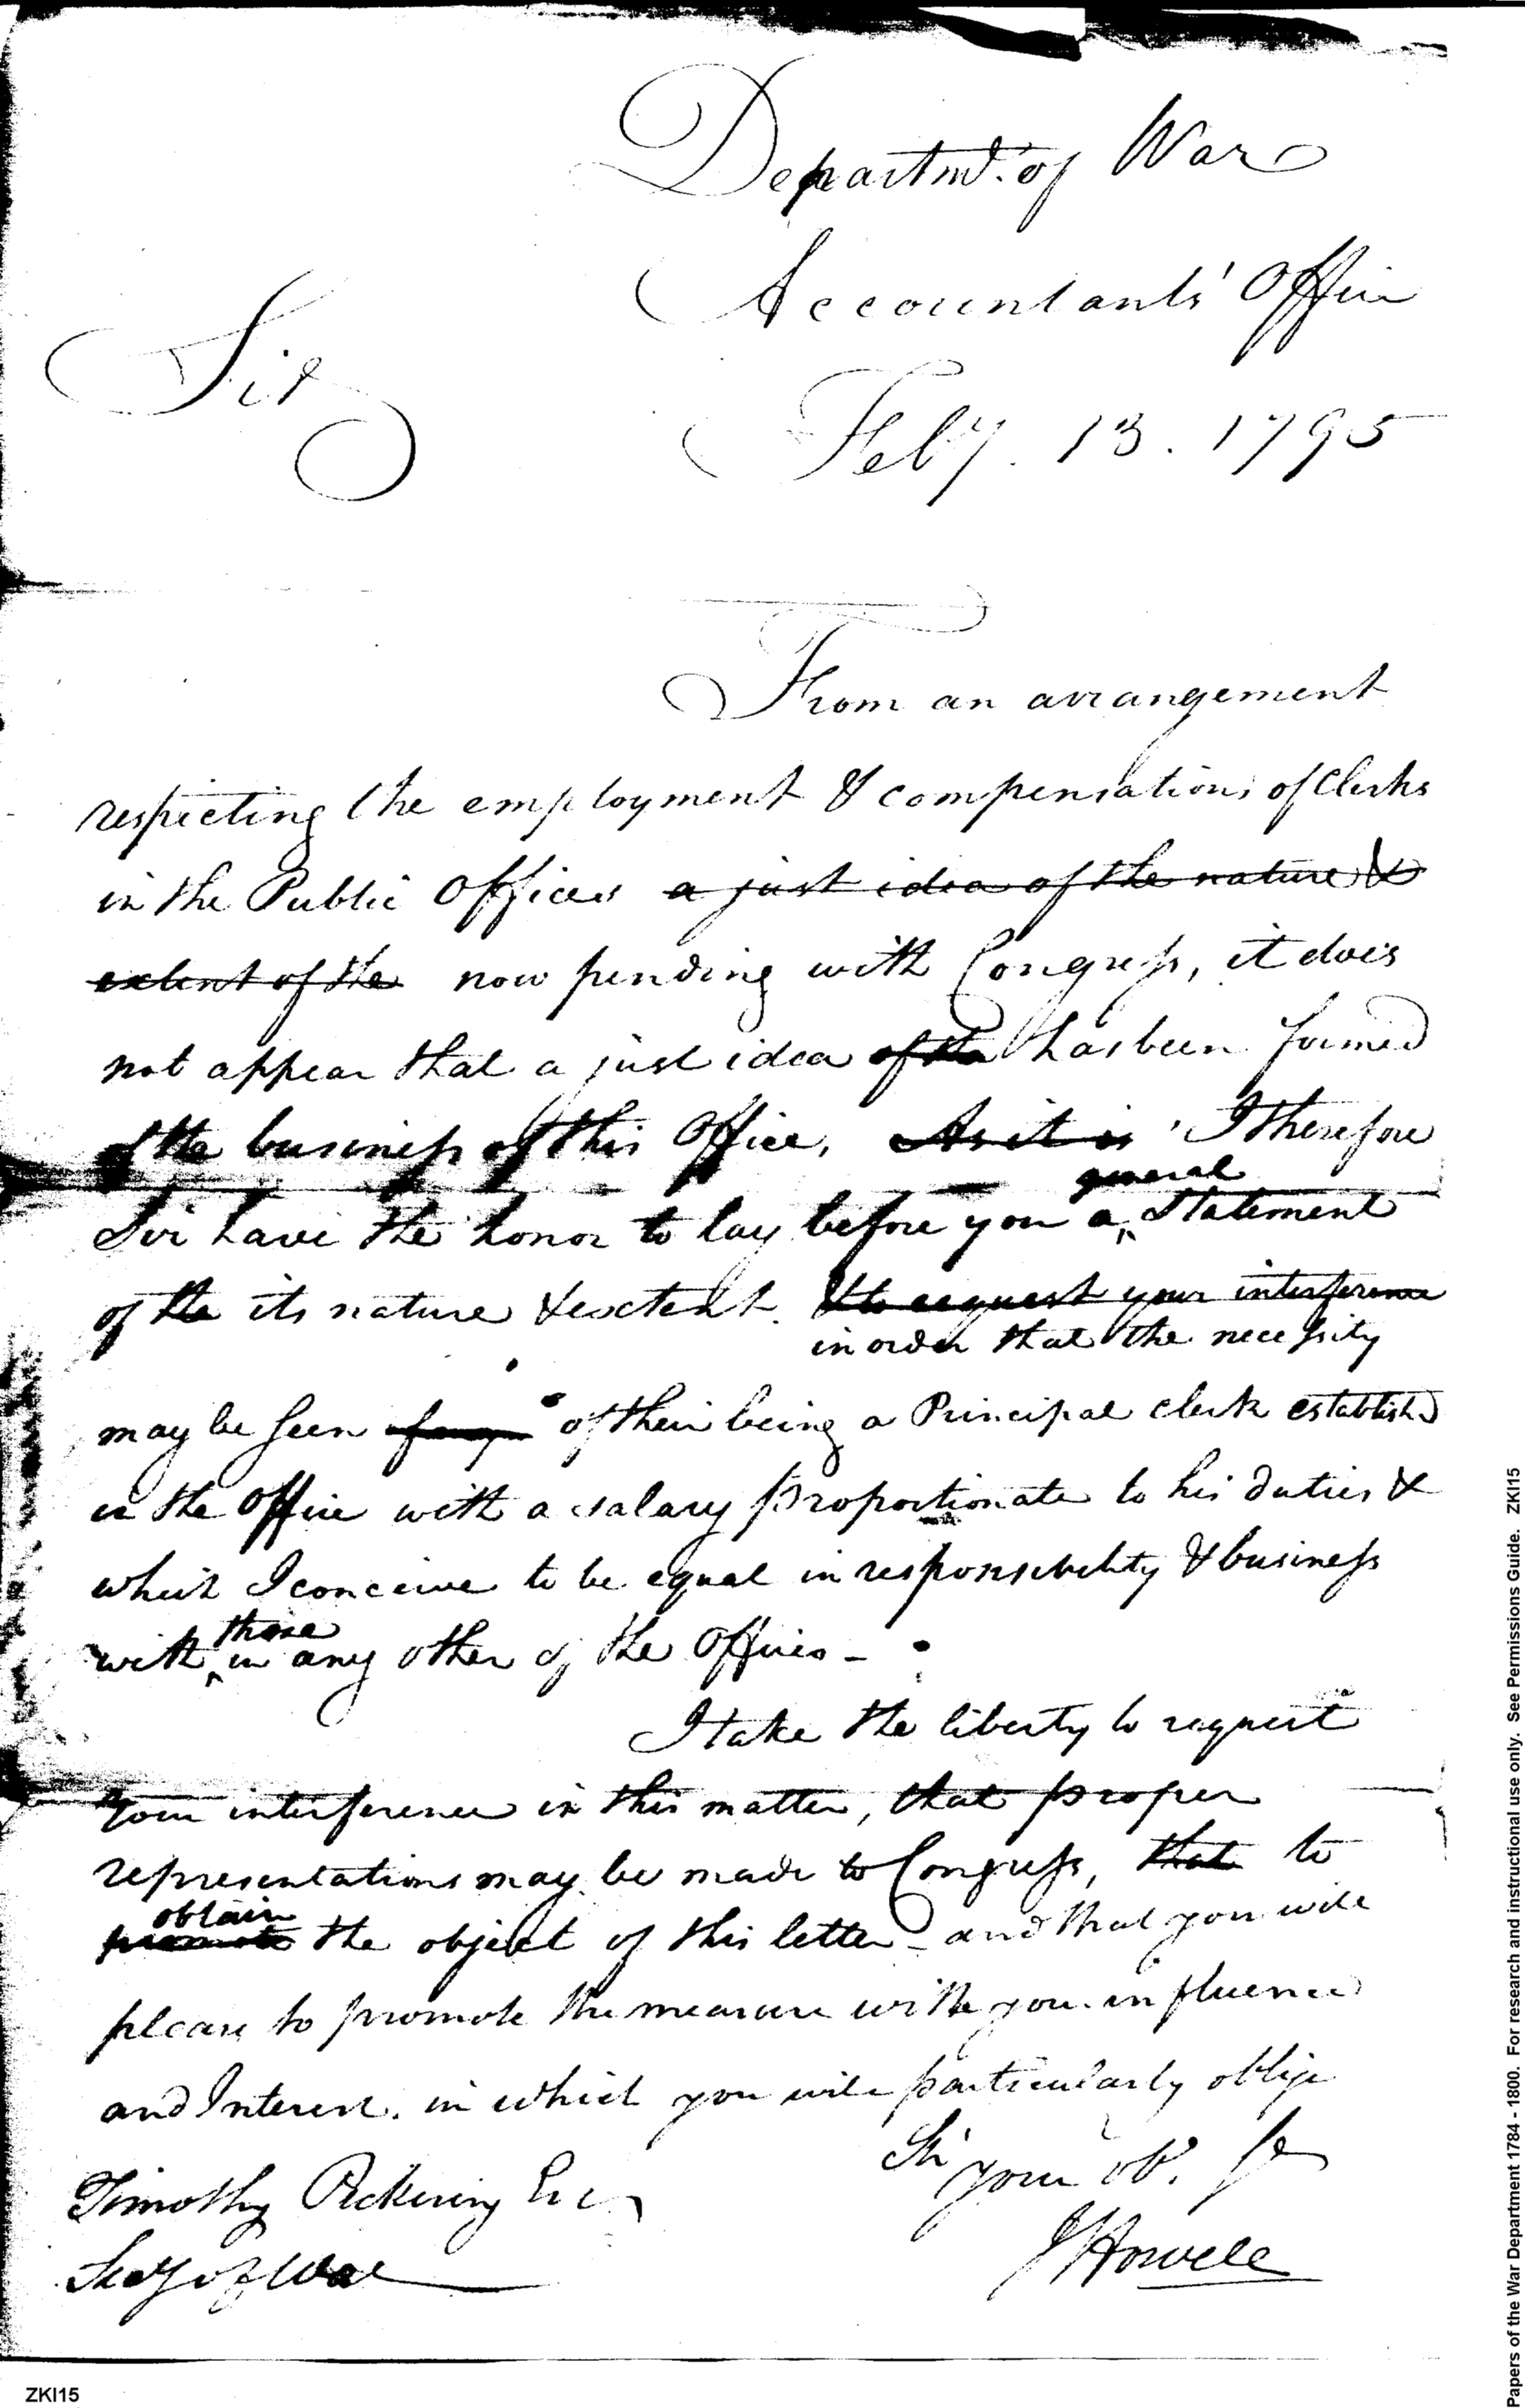 Departmt. of War
Accountants' Office
Sir
Feby. 13. 1795
From an arrangement
respecting the employment & compensations of Clerks
in the Public Offices a just idea of the nature &
extent of the now pending with Congress, it does
not appear that a just idea of the has been formed
of the business of this Office, As it is I therefore
general
Sir have the honor to lay before you a statement
of the its nature & extent. & to request your interference
in order that the necessity
may be seen of their being a Principal clerk established
in the Office with a salary proportionate to his duties &
which I conceive to be equal in responsibility & business
those
with in any other of the Offices -
I take the liberty to request
your interference in this matter, that proper
representations may be made to Congress, that to
obtain
promote the object of this letter - and that you will
please to promote the measure with your influence
and Interest. in which you will particularly oblige
Sir
your ob. Se
Timothy Pickering Esq
JHowell
Secy of War
ZKI15
Papers of the War Department 1784 - 1800. For research and instructional use only. See Permissions Guide. ZKI15